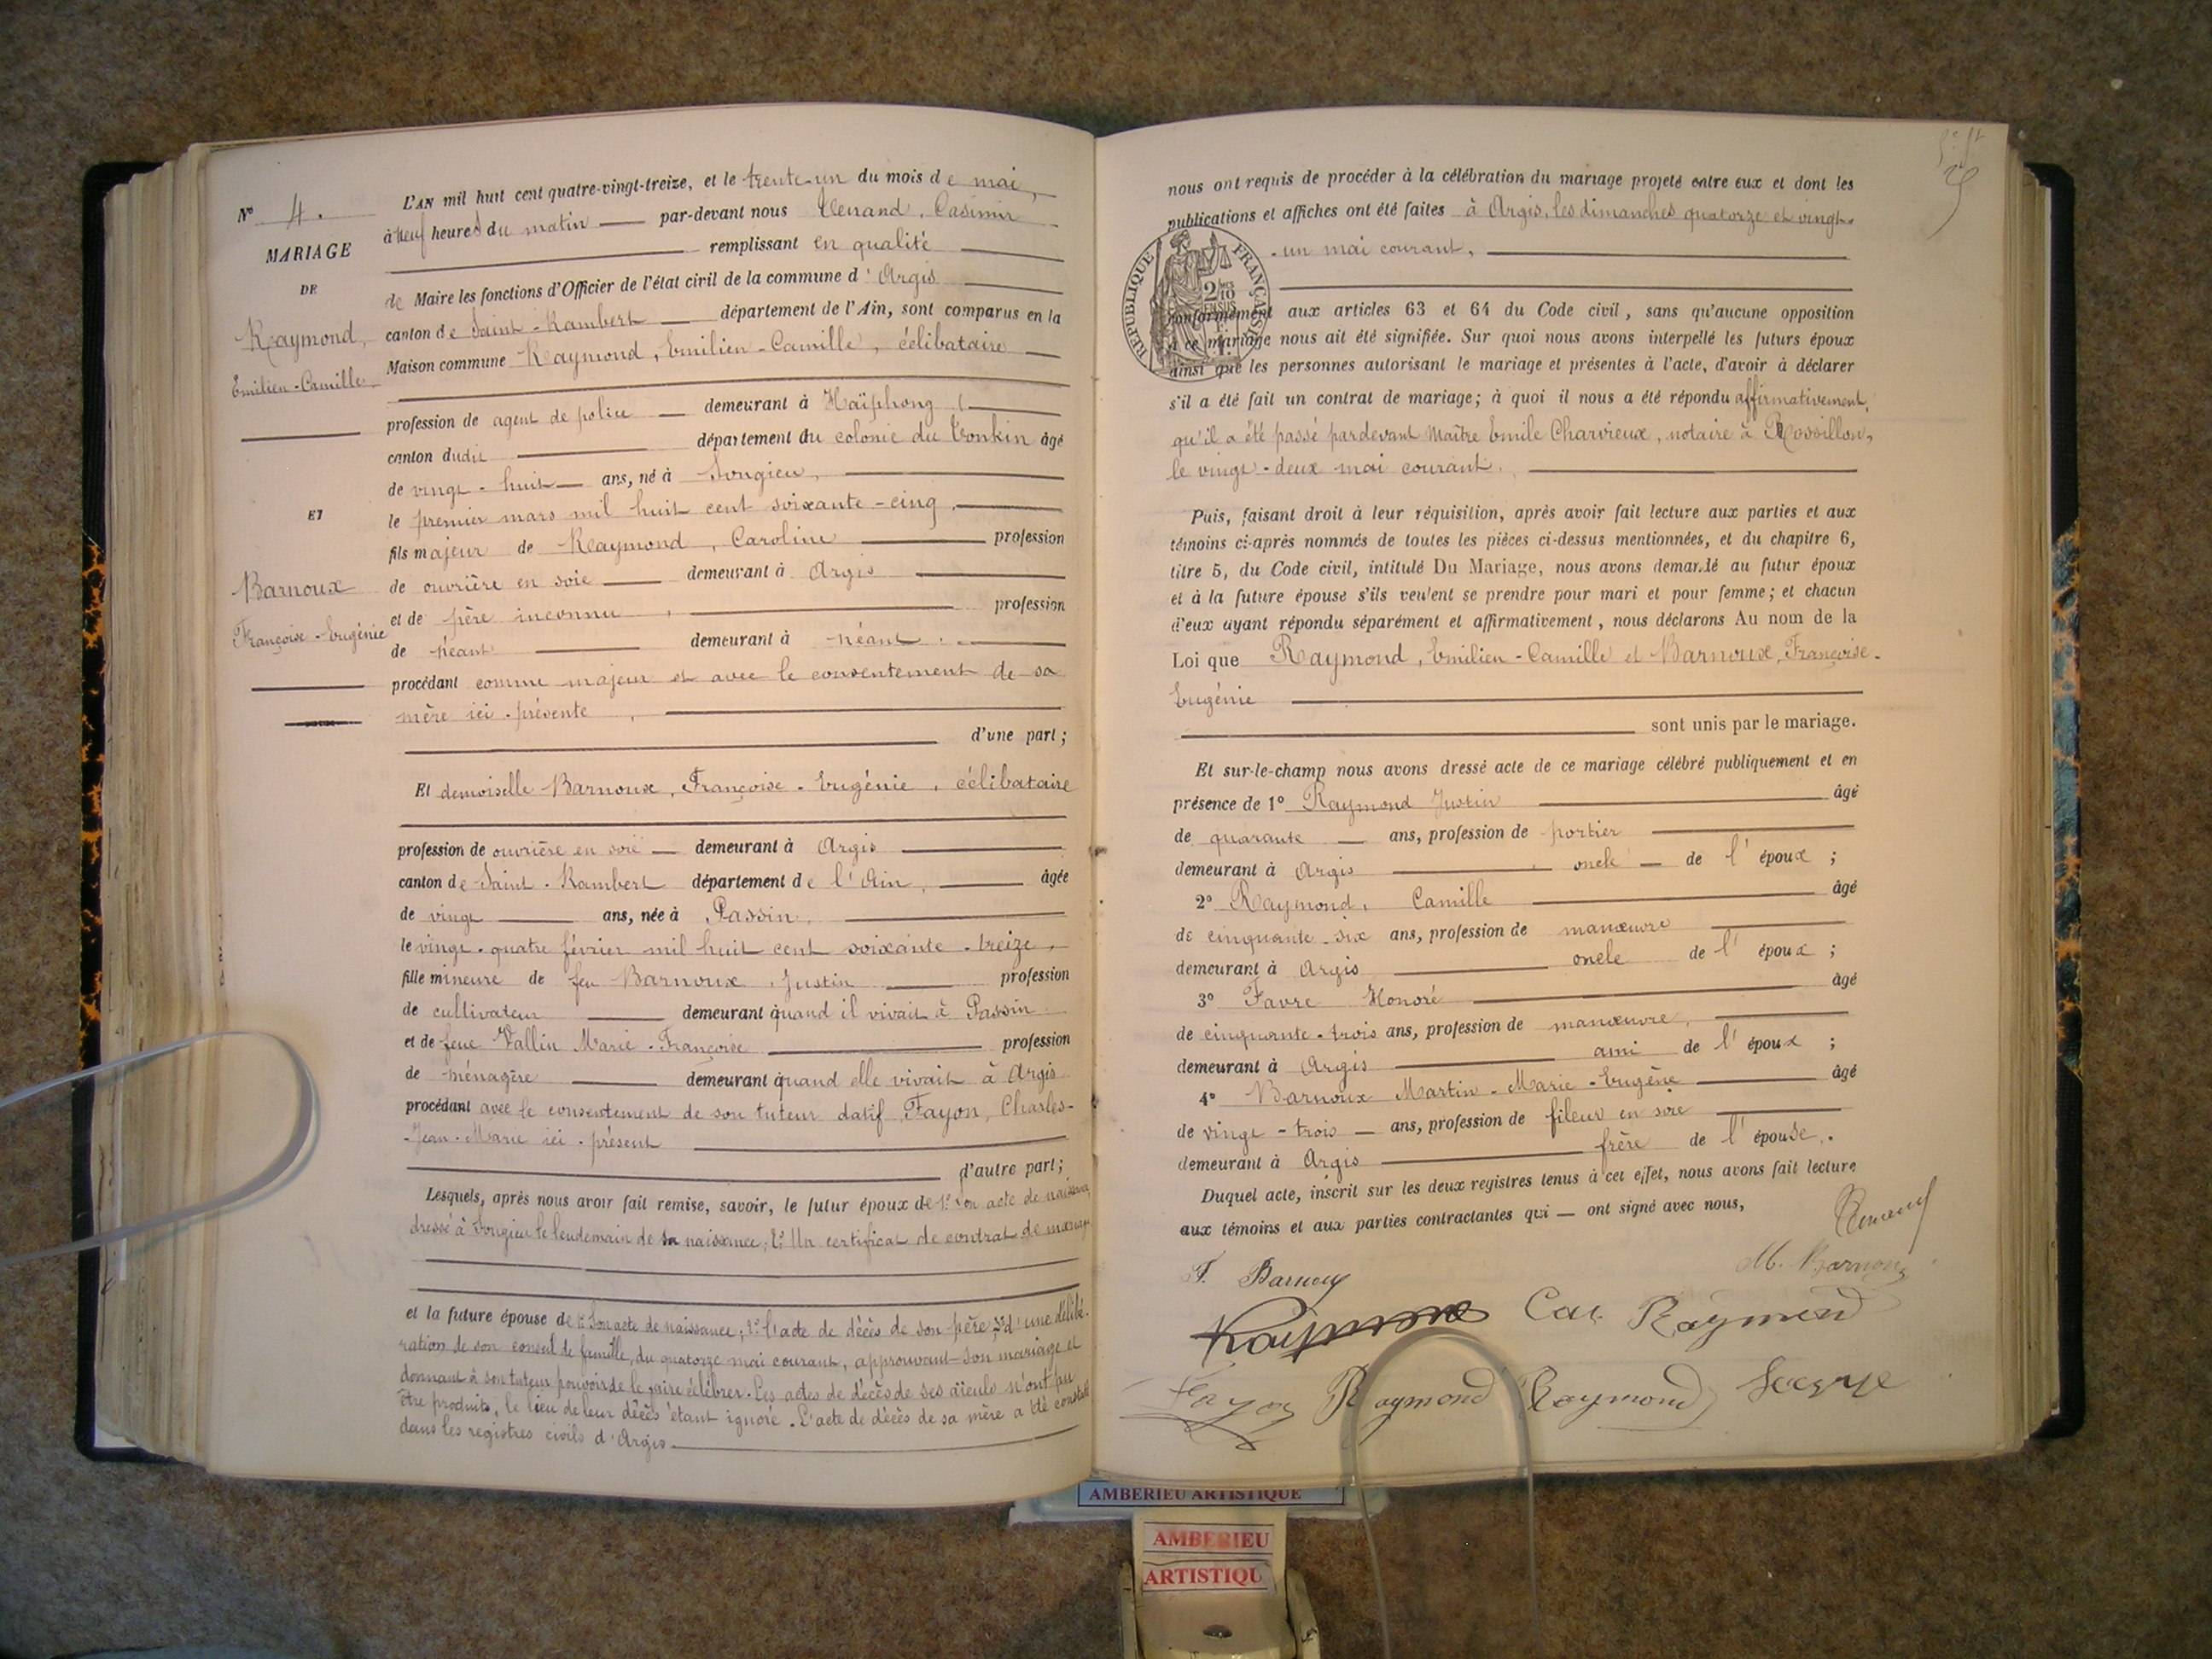 N° 4.
MARIAGE
DE
Raymond,
Emilien-Camille
ET
Barnoux
Françoise-Eugénie
L'AN mil huit cent quatre-vingt-treize, et le trente-un du mois de mai,
à neuf heures du matin par-devant nous Venand, Casimir
remplissant en qualité
de Maire les fonctions d'Officier de l'état civil de la commune d'Argis
canton de Saint-Rambert département de l'Ain, sont comparus en la
Maison commune Raymond, Emilien-Camille, célibataire
profession de agent de police demeurant à Haïphong
canton dudit département du colonie du Tonkin âgé
de vingt-huit ans, né à Songieu,
le premier mars mil huit cent soixante-cinq,
fils majeur de Raymond, Caroline profession
de ouvrière en soie demeurant à Argis
et de père inconnu, profession
de néant demeurant à néant.
procédant comme majeur et avec le consentement de sa
mère ici-présente,
d'une part;
Et demoiselle Barnoux, Françoise-Eugénie, célibataire
profession de ouvrière en soie demeurant à Argis
canton de Saint-Rambert département de l'Ain, âgée
de vingt ans, née à Passin,
le vingt-quatre février mil huit cent soixante-treize,
fille mineure de feu Barnoux, Justin profession
de cultivateur demeurant quand il vivait à Passin
et de feue Vallin Marie-Françoise profession
de ménagère demeurant quand elle vivait à Argis
procédant avec le consentement de son tuteur datif, Fayon, Charles-
-Jean-Marie ici-présent
d'autre part;
Lesquels, après nous avoir fait remise, savoir, le futur époux de 1° son acte de naissance
dressé à Songieu le lendemain de sa naissance; 2° Un certificat de contrat de mariage
et la future épouse de 1° Son acte de naissance; 2° l'acte de décès de son père 3° d'une délibé-
ration de son conseil de famille, du quatorze mai courant, approuvant son mariage et
donnant à son tuteur pouvoir de le faire célébrer. Les actes de décès de ses aïeuls n'ont pu
être produits, le lieu de leur décès étant ignoré. L'acte de décès de sa mère a été constaté
dans les registres civils d'Argis.
nous ont requis de procéder à la célébration du mariage projeté entre eux et dont les
publications et affiches ont été faites à Argis, les dimanches quatorze et vingt-
-un mai courant,
RÉPUBLIQUE FRANÇAISE
2/10 EN SUS
conformément aux articles 63 et 64 du Code civil, sans qu'aucune opposition
à ce mariage nous ait été signifiée. Sur quoi nous avons interpellé les futurs époux
ainsi que les personnes autorisant le mariage et présentes à l'acte, d'avoir à déclarer
s'il a été fait un contrat de mariage; à quoi il nous a été répondu affirmativement,
qu'il a été passé pardevant Maître Emile Charvieux, notaire à Rossillon,
le vingt-deux mai courant.
Puis, faisant droit à leur réquisition, après avoir fait lecture aux parties et aux
témoins ci-après nommés de toutes les pièces ci-dessus mentionnées, et du chapitre 6,
titre 5, du Code civil, intitulé Du Mariage, nous avons demandé au futur époux
et à la future épouse s'ils veulent se prendre pour mari et pour femme; et chacun
d'eux ayant répondu séparément et affirmativement, nous déclarons Au nom de la
Loi que Raymond, Emilien-Camille et Barnoux, Françoise-
Eugénie
sont unis par le mariage.
Et sur-le-champ nous avons dressé acte de ce mariage célébré publiquement et en
présence de 1° Raymond Justin âgé
de quarante ans, profession de portier
demeurant à Argis, oncle de l'époux;
2° Raymond, Camille âgé
de cinquante-six ans, profession de manœuvre
demeurant à Argis oncle de l'époux;
3° Favre Honoré âgé
de cinquante-trois ans, profession de manœuvre,
demeurant à Argis ami de l'époux;
4° Barnoux Martin-Marie-Eugène âgé
de vingt-trois ans, profession de fileur en soie
demeurant à Argis frère de l'épouse.
Duquel acte, inscrit sur les deux registres tenus à cet effet, nous avons fait lecture
aux témoins et aux parties contractantes qui ont signé avec nous,
F. Barnoux
M. Barnoux
Raymond Car. Raymond
Fayon Raymond Raymond
AMBERIEU ARTISTIQUE
AMBERIEU
ARTISTIQU